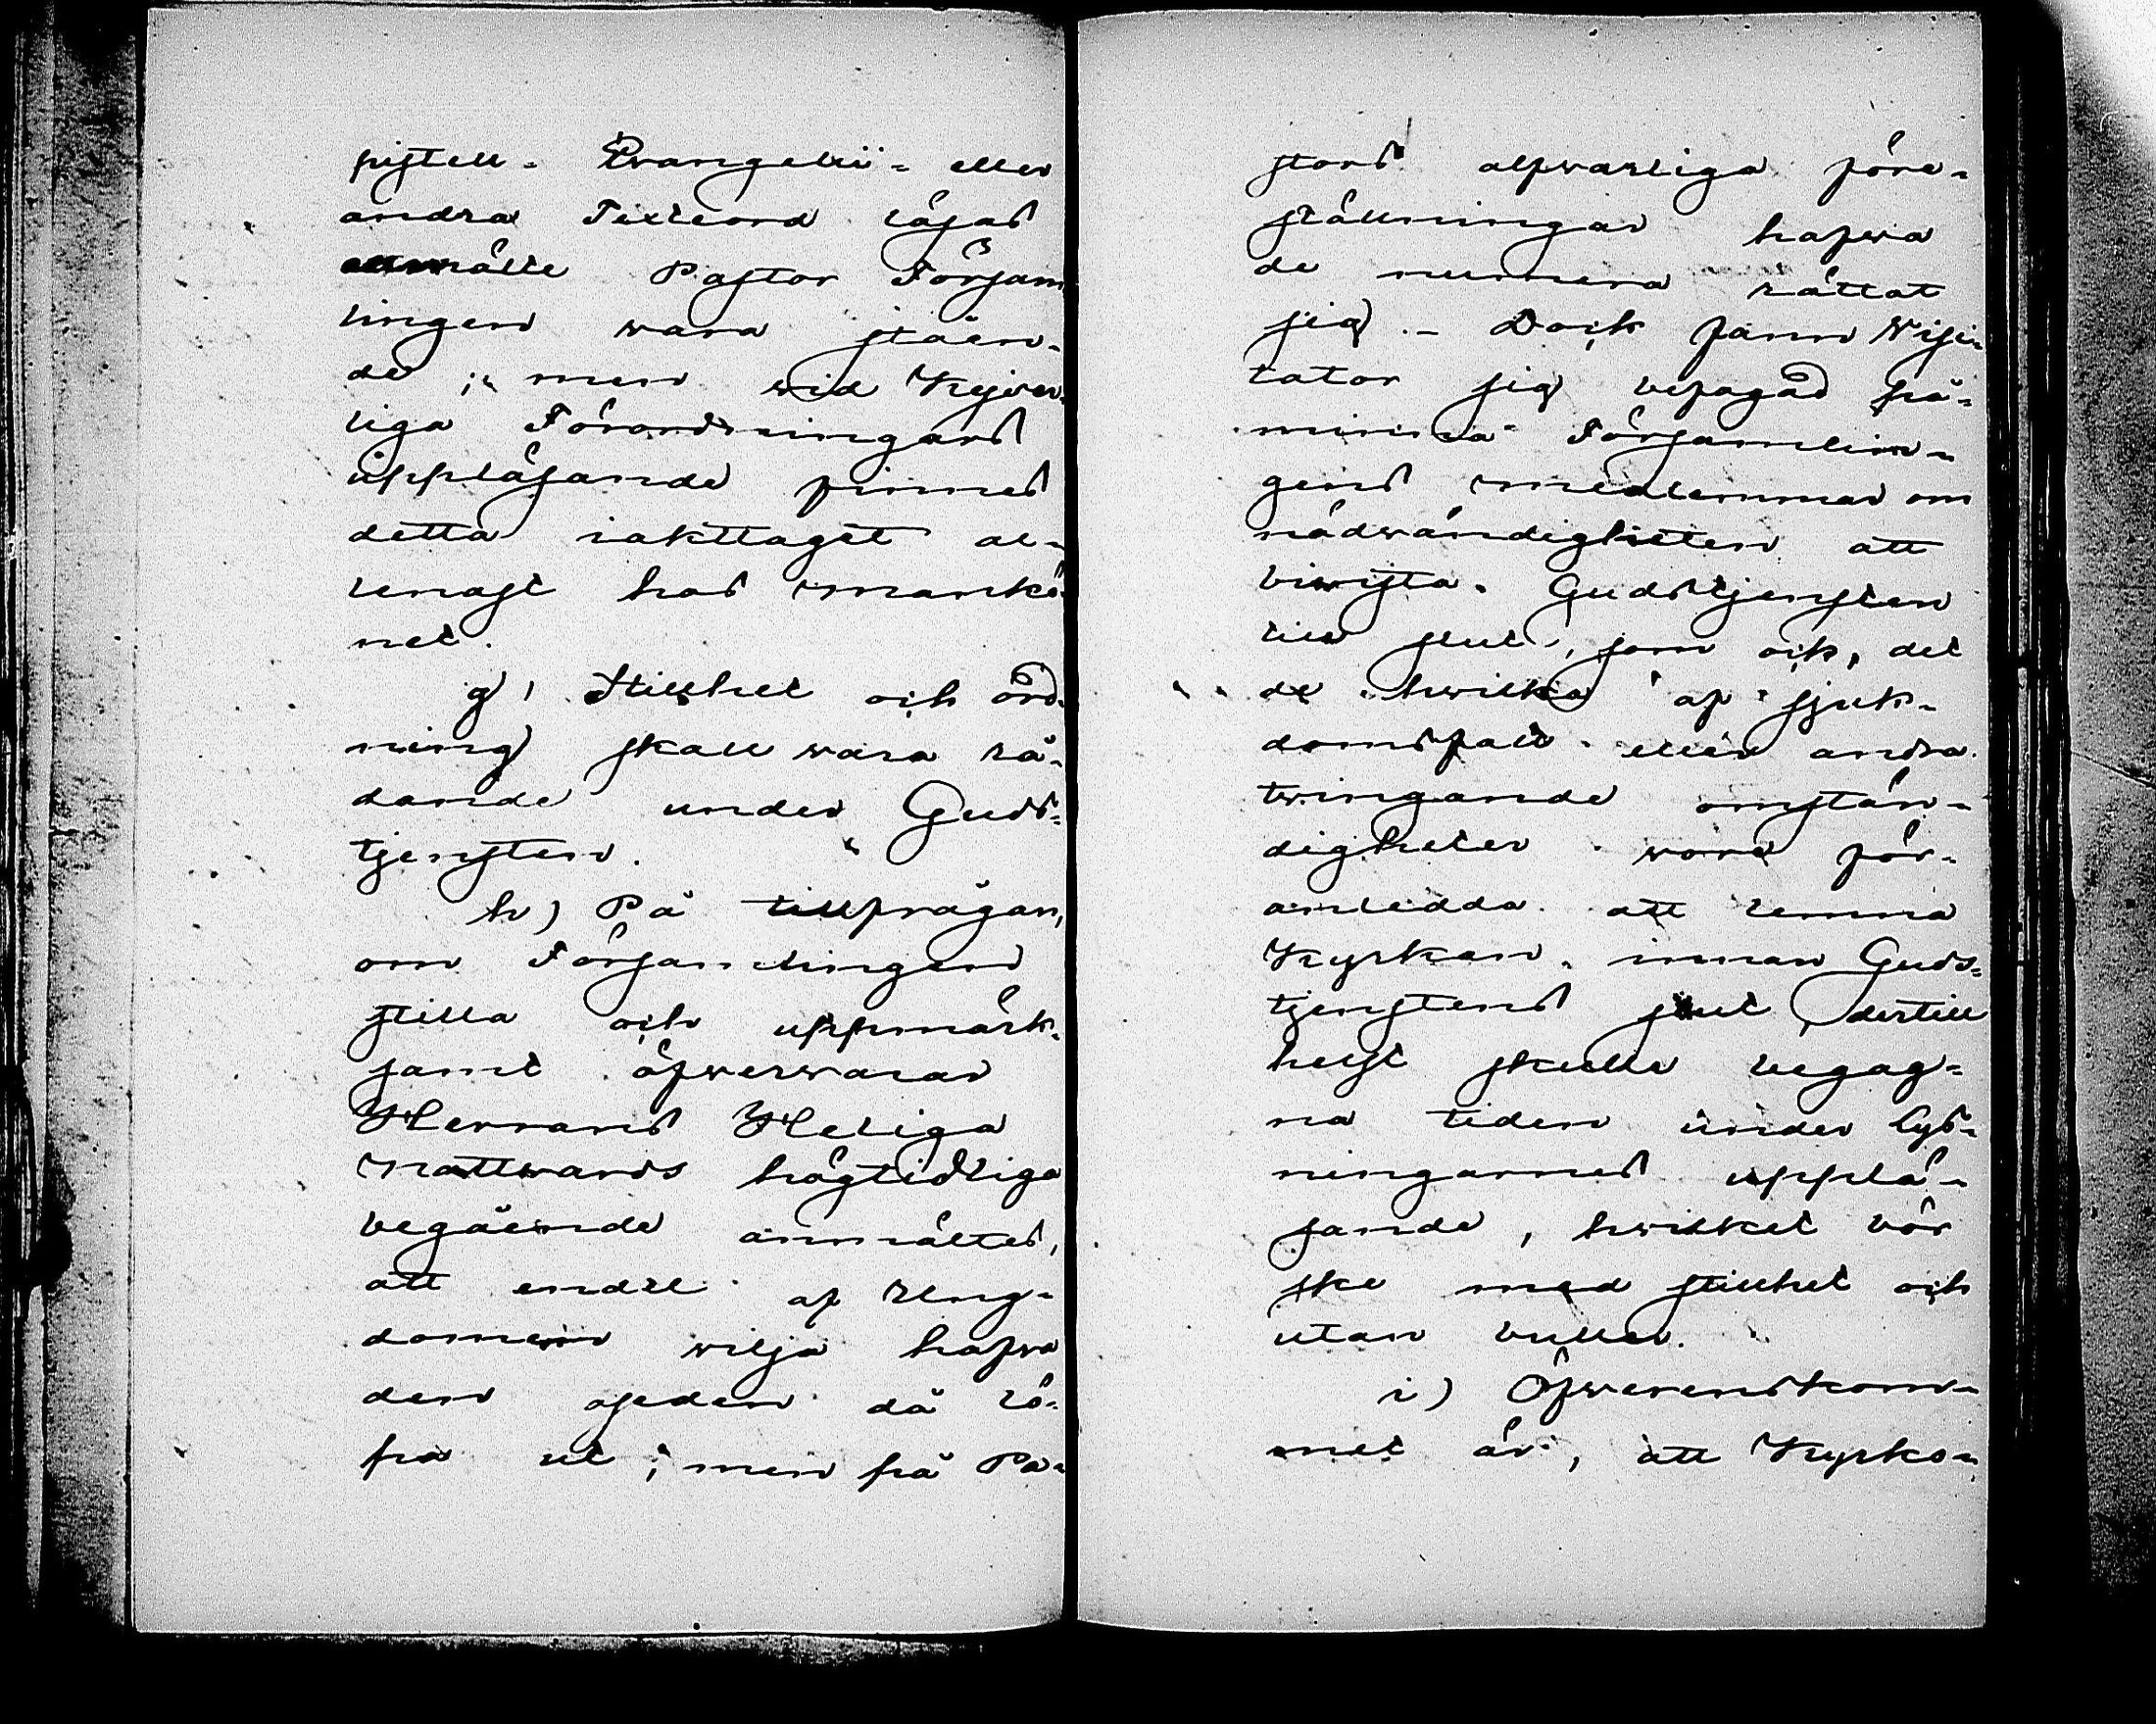 pistell- Evangelii- eller
andra Texteord läsas
anmälte Pastor Försam
lingen wara ståen-
de; men wid Kejser-
liga Förordningars
uppläsande finnes
detta iakttaget al-
lenast hos mankö-
net.
g) Stillhet och ord-
ning skall wara rå-
dande under Guds-
tjensten.
h) På tillfrågan,
om Församlingen
stilla och uppmärk-
samt öfwerwarar
Herrans Heliga
Nattwards högtidliga
begående anmältes,
att endel af Ung-
domen wilja hafwa
den oseden då lö-
pa ut; men på Pa-
stors alfwarliga före-
ställningar hafwa
de numera rättat
sig. - Dock fann Visi-
tator sig befogad på-
minna Församlin-
gens medlemmar om
nödwändigheten att
biwista Gudstjensten
till slut, som ock, det
de hwilka af sjuk-
domsfall eller andra
twingande omstän-
digheter wore för-
anledda att lemna
Kyrkan innan Guds-
tjenstens slut, dertill
helst skulle begag-
na tiden under lys-
ningarnes upplä-
sande, hwilket bör
ske med stillhet och
utan buller.
i) Öfwerenskom-
met är, att Kyrko-